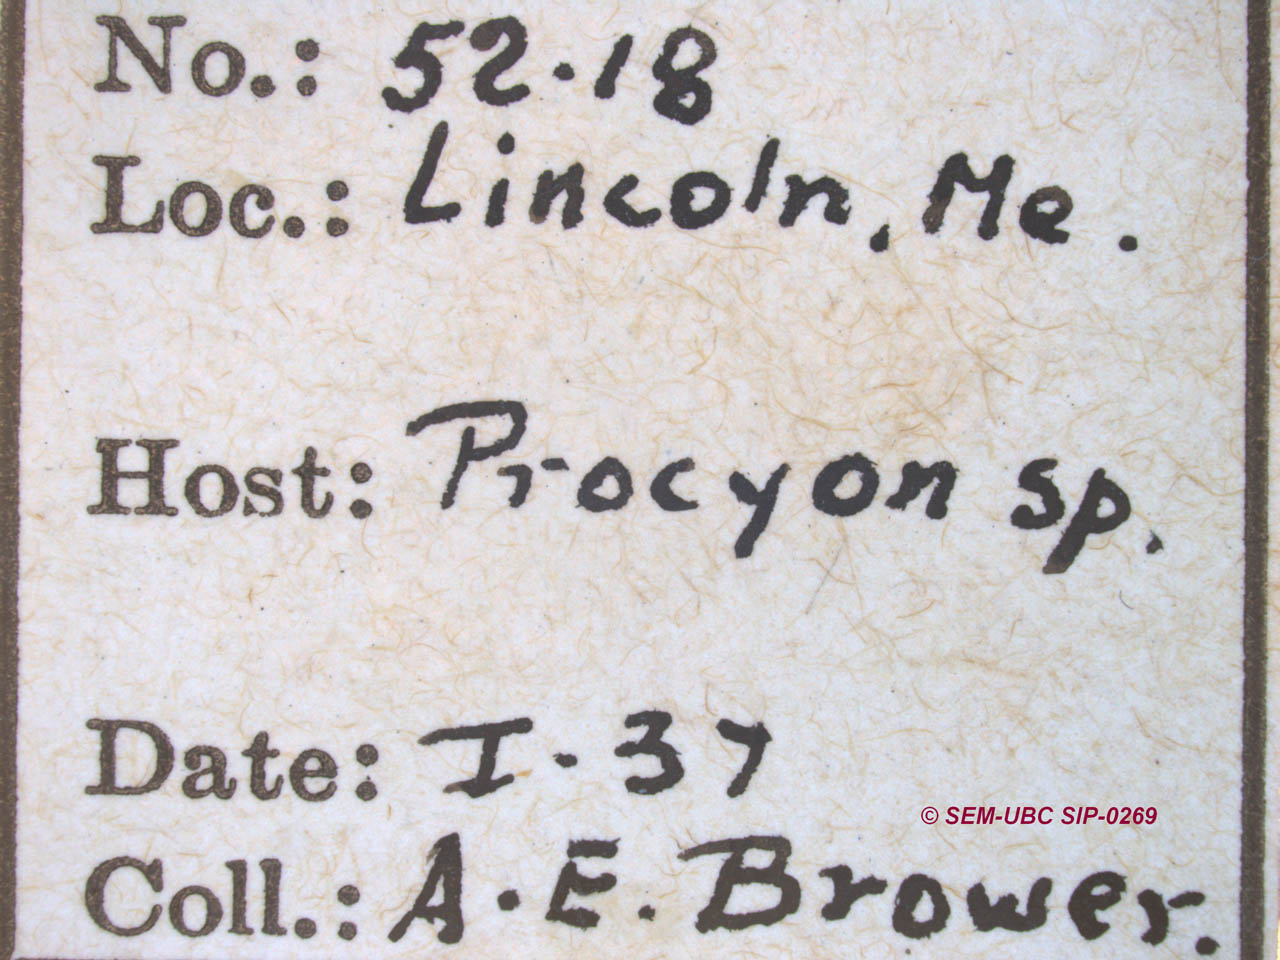 No.: 52·18
Loc.: Lincoln, Me.
Host: Procyon sp.
Date: I·37
© SEM-UBC SIP-0269
Coll.: A·E. Brower.